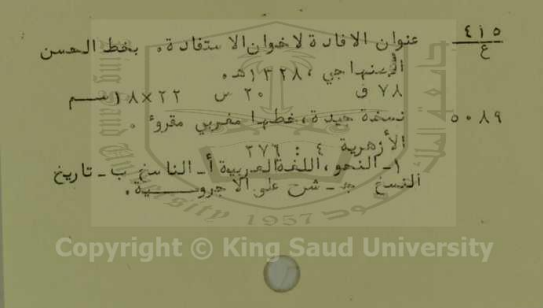 ٤١٥
ع
عنوان الافادة لاخوان الاستفادة. بخط الحسن
١٣٢٨هـ.
٧٨ ق ٢٠ س ٢٢×١٨ سم
٥٠٨٩ نسخة جيدة، خطها مغربي مقروء.
الأزهرية ٤ : ٢٧٦
١- النحو، اللغة العربية أ- الناسخ ب- تاريخ
النسخ ج- شرح على الاجروميـة.
1957
Copyright © King Saud University